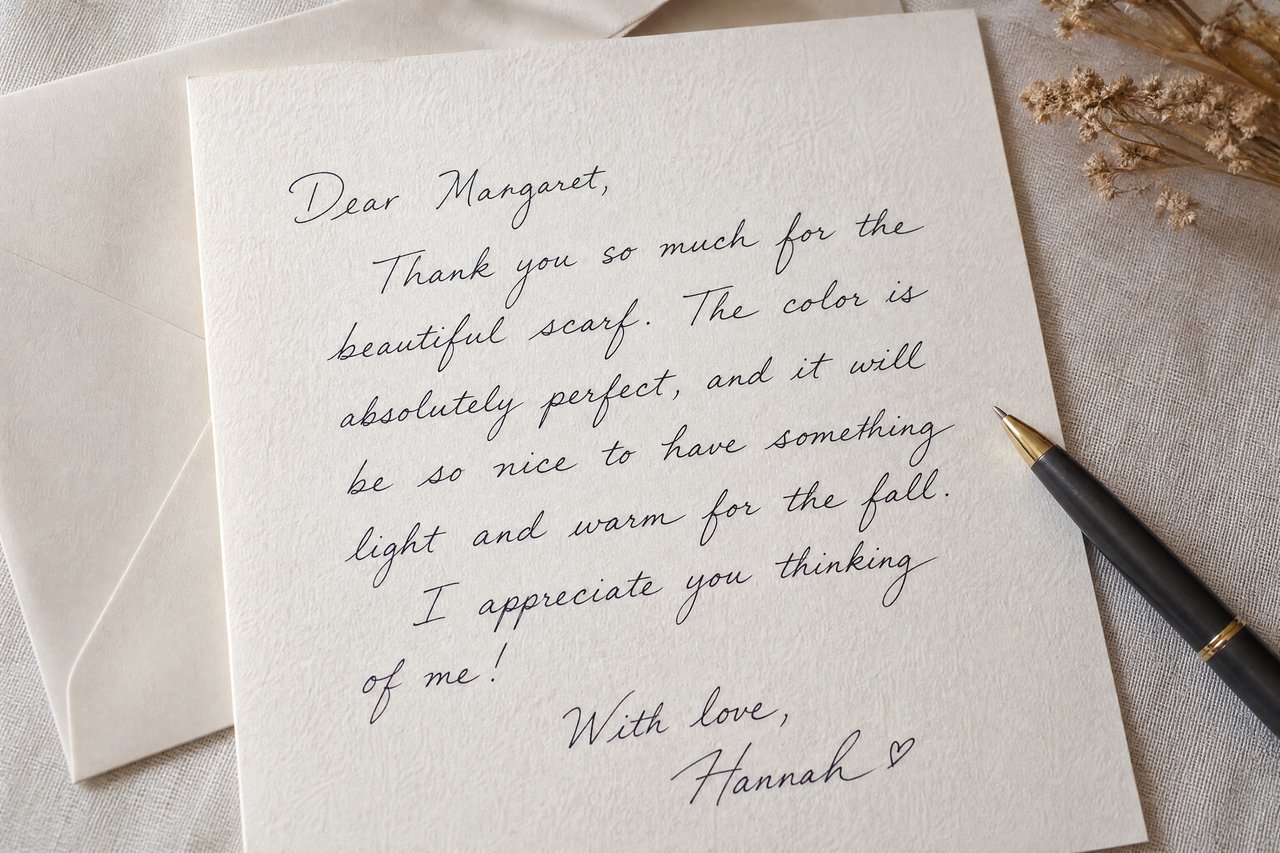 Dear Margaret,
Thank you so much for the
beautiful scarf. The color is
absolutely perfect, and it will
be so nice to have something
light and warm for the fall.
I appreciate you thinking
of me!
With love,
Hannah ♡